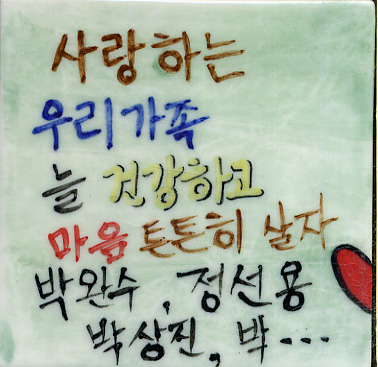 사랑하는
우리가족
늘 건강하고
마음 튼튼히 살자
박완수, 정선용
박상진, 박...